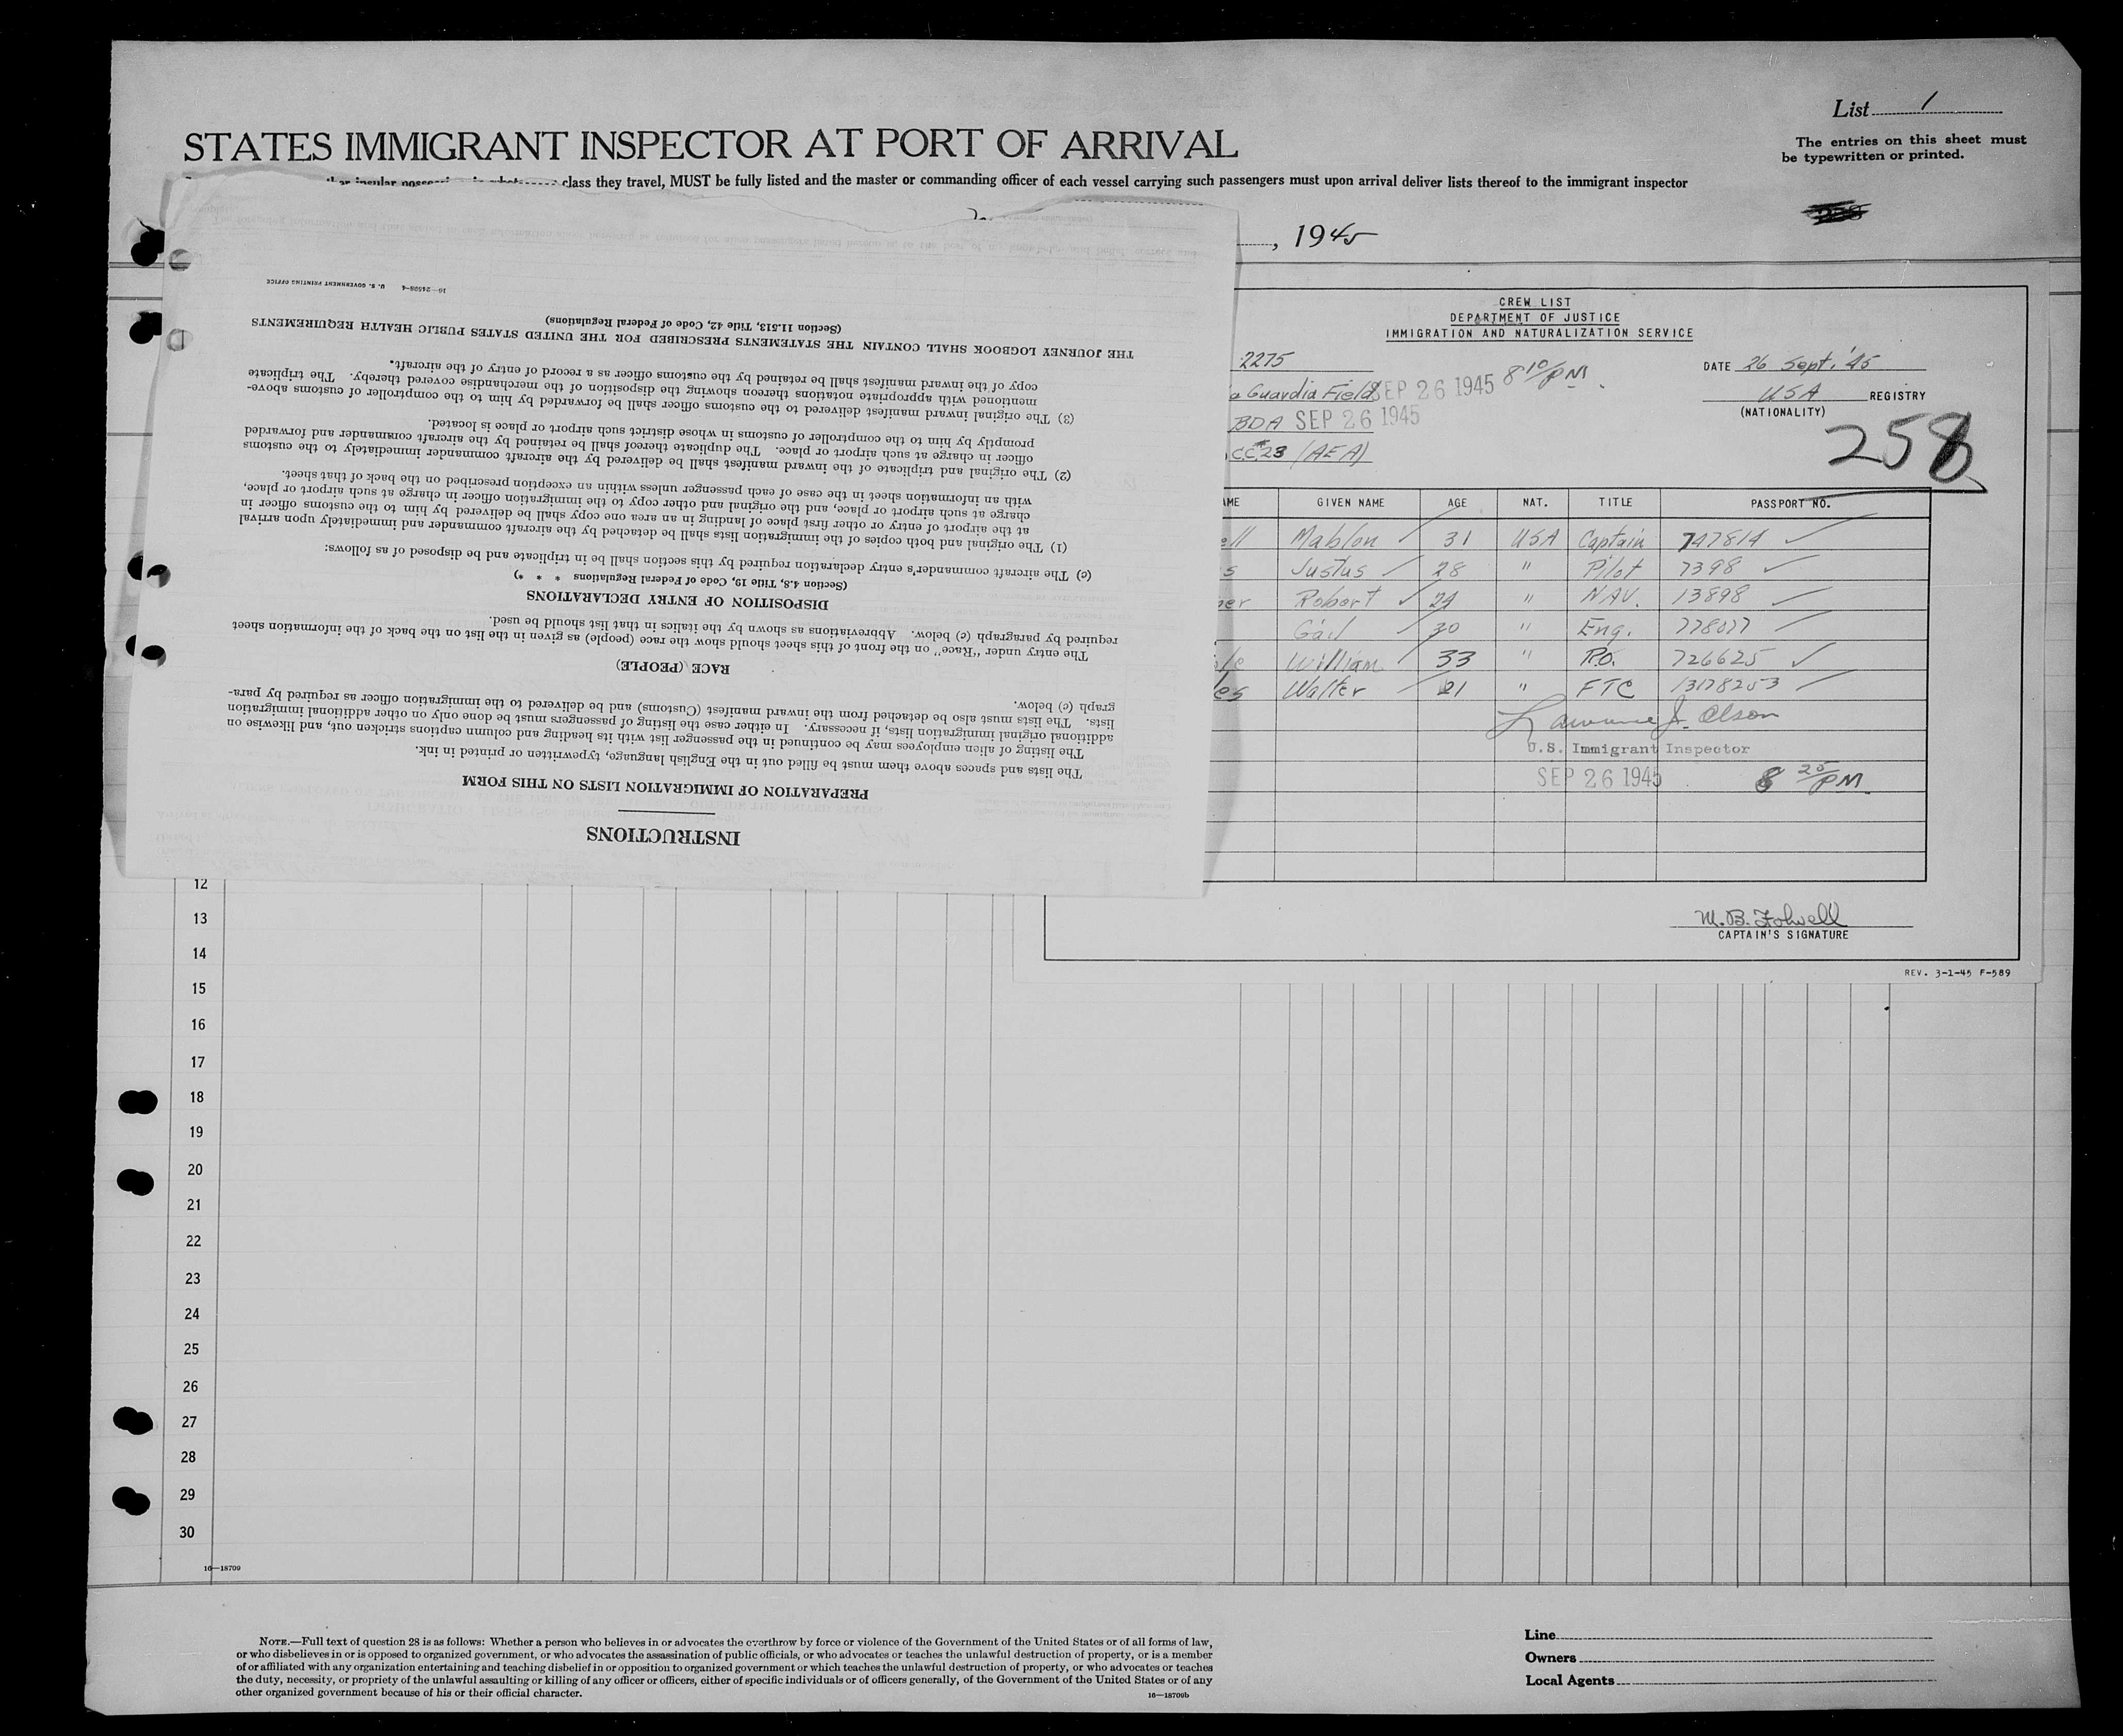 List 1
The entries on this sheet must
be typewritten or printed.
STATES IMMIGRANT INSPECTOR AT PORT OF ARRIVAL
class they travel, MUST be fully listed and the master or commanding officer of each vessel carrying such passengers must upon arrival deliver lists thereof to the immigrant inspector
, 1945
CREW LIST
DEPARTMENT OF JUSTICE
IMMIGRATION AND NATURALIZATION SERVICE
2275
DATE 26 Sept. '45
a Guardia Field SEP 26 1945 8 10/PM.
USA REGISTRY
(NATIONALITY)
BDA SEP 26 1945
258
C.C. 23 (AEA)
AME GIVEN NAME AGE NAT. TITLE PASSPORT NO.
ell Mahlon 31 USA Captain 747814
s Justus 28 " Pilot 7398
ber Robert 29 " NAV. 13898
Gail 30 " Eng. 778077
le William 33 " R.O. 726625
es Walter 21 " FTC 13178253
Lawrence J. Olson
U.S. Immigrant Inspector
SEP 26 1945 8 25/PM.
M.B. Folwell
CAPTAIN'S SIGNATURE
REV. 3-1-45 F-589
INSTRUCTIONS
PREPARATION OF IMMIGRATION LISTS ON THIS FORM
The lists and spaces above them must be filled out in the English language, typewritten or printed in ink.
The listing of alien employees may be continued in the passenger list with its heading and column captions stricken out, and likewise on
additional original immigration lists, if necessary. In either case the listing of passengers must be done only on other additional immigration
lists. The lists must also be detached from the inward manifest (Customs) and be delivered to the immigration officer as required by para-
graph (c) below.
RACE (PEOPLE)
The entry under "Race" on the front of this sheet should show the race (people) as given in the list on the back of the information sheet
required by paragraph (c) below. Abbreviations as shown by the italics in that list should be used.
DISPOSITION OF ENTRY DECLARATIONS
(Section 4.8, Title 19, Code of Federal Regulations * * *)
(c) The aircraft commander's entry declaration required by this section shall be in triplicate and be disposed of as follows:
(1) The original and both copies of the immigration lists shall be detached by the aircraft commander and immediately upon arrival
at the airport of entry or other first place of landing in an area one copy shall be delivered by him to the customs officer in
charge at such airport or place, and the original and other copy to the immigration officer in charge at such airport or place,
with an information sheet in the case of each passenger unless within an exception prescribed on the back of that sheet.
(2) The original and triplicate of the inward manifest shall be delivered by the aircraft commander immediately to the customs
officer in charge at such airport or place. The duplicate thereof shall be retained by the aircraft commander and forwarded
promptly by him to the comptroller of customs in whose district such airport or place is located.
(3) The original inward manifest delivered to the customs officer shall be forwarded by him to the comptroller of customs above-
mentioned with appropriate notations thereon showing the disposition of the merchandise covered thereby. The triplicate
copy of the inward manifest shall be retained by the customs officer as a record of entry of the aircraft.
THE JOURNEY LOGBOOK SHALL CONTAIN THE STATEMENTS PRESCRIBED FOR THE UNITED STATES PUBLIC HEALTH REQUIREMENTS
(Section 11.513, Title 42, Code of Federal Regulations)
16—24598-4 U. S. GOVERNMENT PRINTING OFFICE
12
13
14
15
16
17
18
19
20
21
22
23
24
25
26
27
28
29
30
16—18709
NOTE.—Full text of question 28 is as follows: Whether a person who believes in or advocates the overthrow by force or violence of the Government of the United States or of all forms of law,
or who disbelieves in or is opposed to organized government, or who advocates the assassination of public officials, or who advocates or teaches the unlawful destruction of property, or is a member
of or affiliated with any organization entertaining and teaching disbelief in or opposition to organized government or which teaches the unlawful destruction of property, or who advocates or teaches
the duty, necessity, or propriety of the unlawful assaulting or killing of any officer or officers, either of specific individuals or of officers generally, of the Government of the United States or of any
other organized government because of his or their official character.
16—18709b
Line
Owners
Local Agents